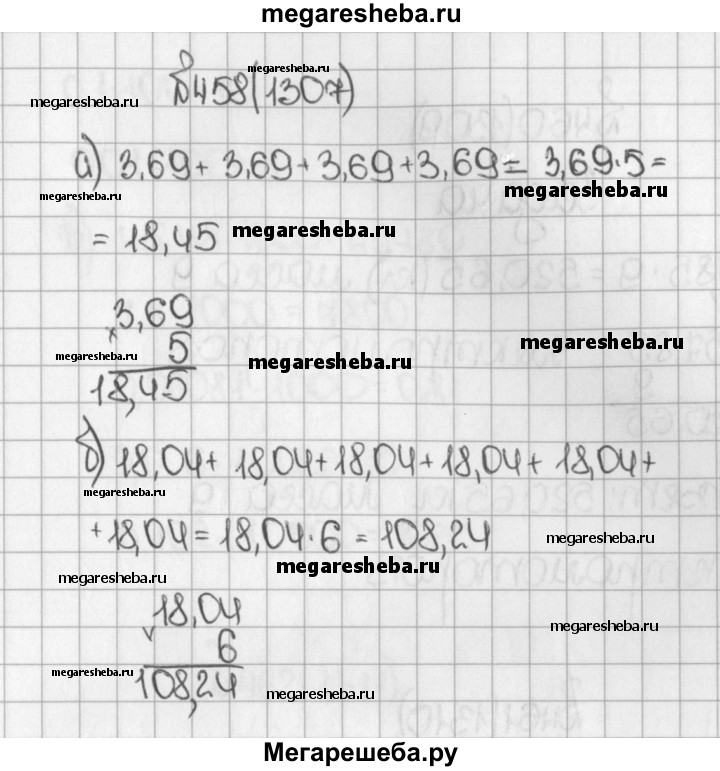 megaresheba.ru
megaresheba.ru
№458(1307)
megaresheba.ru
а) 3,69 + 3,69 + 3,69 + 3,69 = 3,69·5 =
megaresheba.ru megaresheba.ru
= 18,45 megaresheba.ru
3,69
× 5
megaresheba.ru megaresheba.ru megaresheba.ru
18,45
б) 18,04 + 18,04 + 18,04 + 18,04 + 18,04 +
megaresheba.ru
+ 18,04 = 18,04·6 = 108,24
megaresheba.ru
megaresheba.ru
megaresheba.ru
18,04
× 6
megaresheba.ru
megaresheba.ru
108,24
megaresheba.ru
Мегарешеба.ру